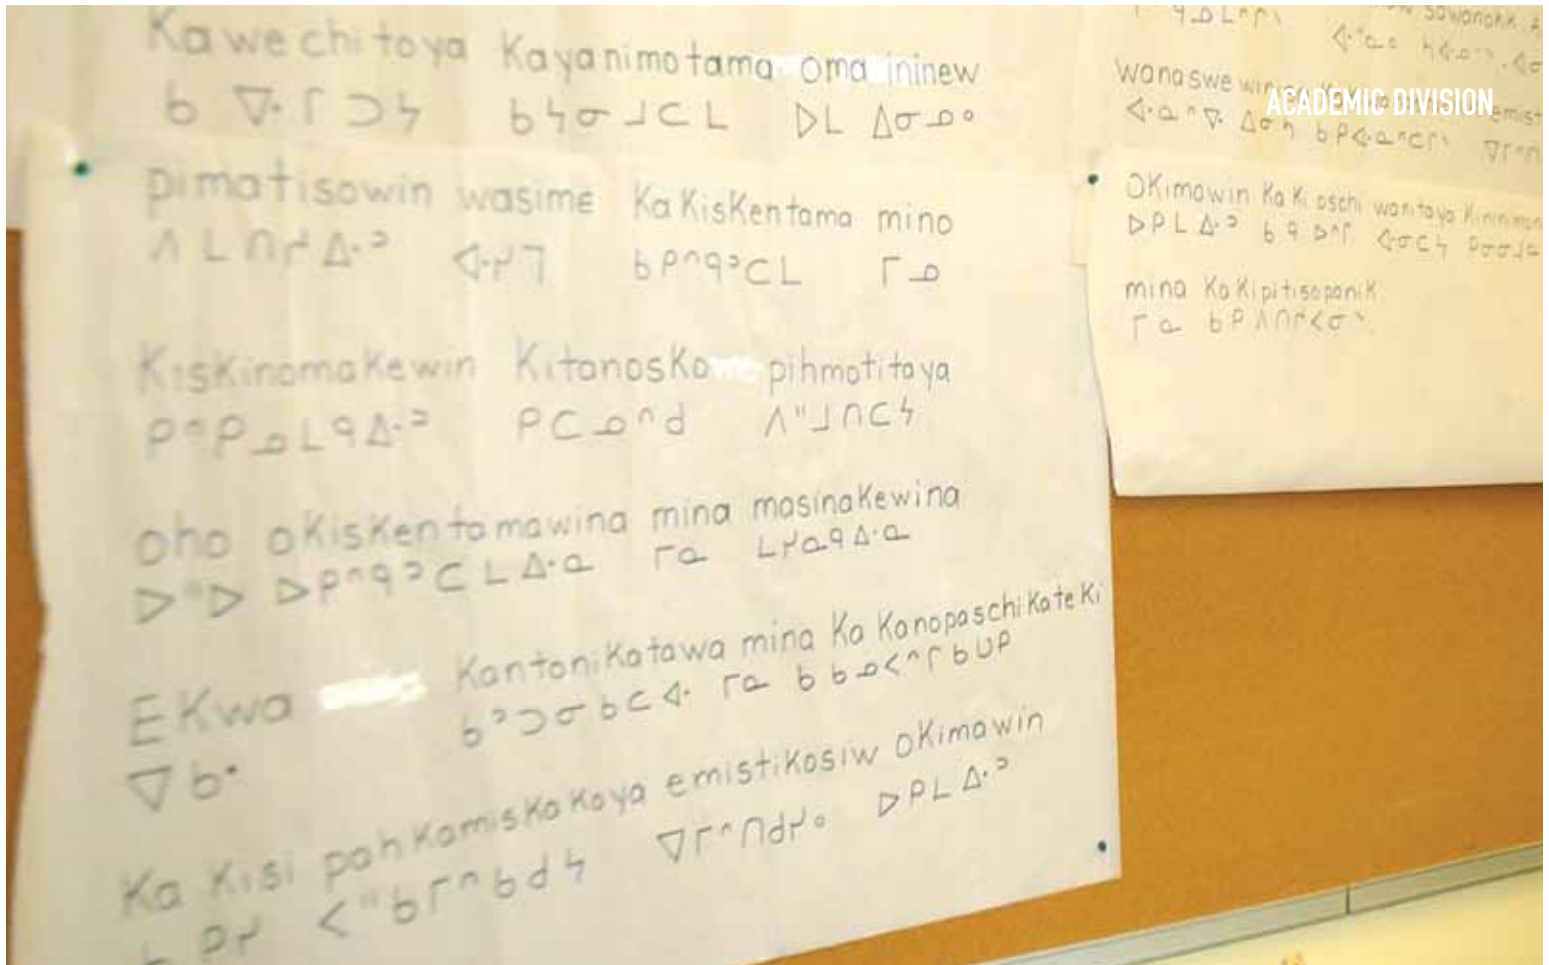 Kawechitoya Kayanimotama oma ininew
ᑲ ᐁᐧᒋᑐᔭ ᑲᔭᓂᒧᑕᒪ ᐅᒪ ᐃᓂᓄᐤ
pimatisowin wasime KaKisKentama mino
ᐱᒪᑎᓱᐃᐧᐣ ᐊᐧᓯᒣ ᑲᑭᐢᑫᐣᑕᒪ ᒥᓄ
KisKinomaKewin KitanosKo pihmotitaya
ᑭᐢᑭᓄᒪᑫᐃᐧᐣ ᑭᑕᓄᐢᑯ ᐱᐦᒧᑎᑕᔭ
oho oKisKentamawina mina masinaKewina
ᐅᐦᐅ ᐅᑭᐢᑫᐣᑕᒪᐃᐧᓇ ᒥᓇ ᒪᓯᓇᑫᐃᐧᓇ
EKwa KantoniKatawa mina Ka KanopaschiKateKi
ᐁᑲᐧ ᑲᐣᑐᓂᑲᑕᐊᐧ ᒥᓇ ᑲ ᑲᓄᐸᐢᒋᑲᑌᑭ
Ka Kisi pahKamisKaKoya emistiKosiw oKimawin
ᑭᓯ ᐸᐦᑲᒥᐢᑲᑯᔭ ᐁᒥᐢᑎᑯᓯᐤ ᐅᑭᒪᐃᐧᐣ
ACADEMIC DIVISION
ᐊᐧᓇᐢᐁᐧ ᐃᓂᓴ
oKimawin Ka Ki oschi wanitaya
ᐅᑭᒪᐃᐧᐣ ᑲ ᑫ ᐅᐢᒋ ᐊᓂᑕᔭ
mina Ka Kipitisapaniᴋ
ᒥᓇ ᑲᑭᐱᑎᓴᐸᓂᐠ